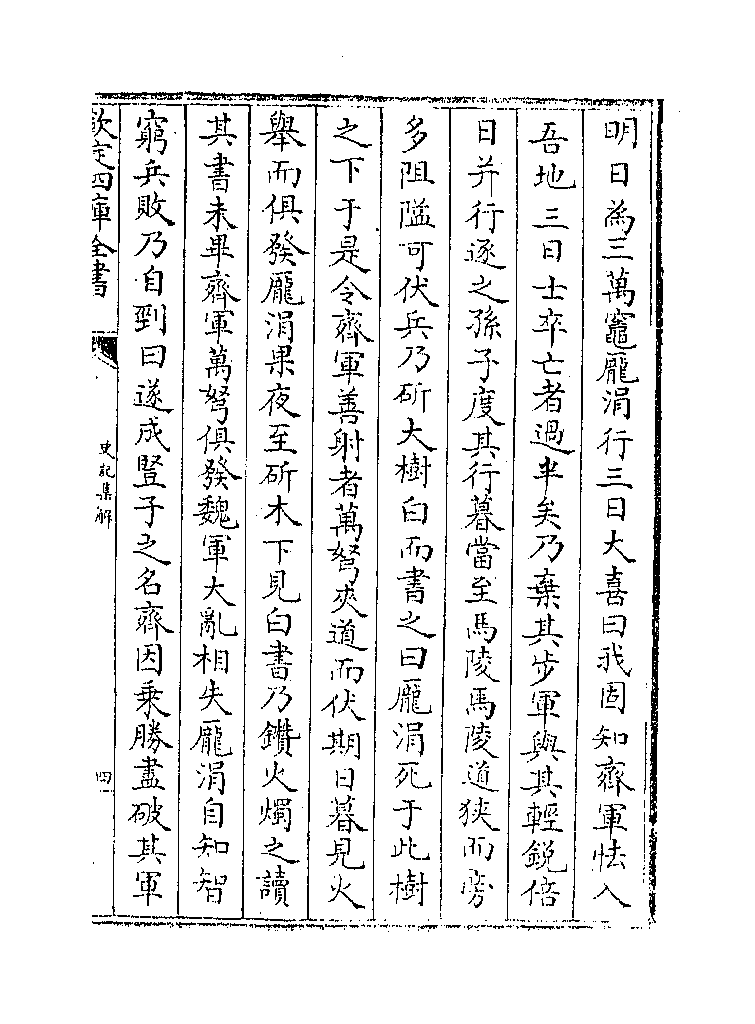 明日為三萬竈龐涓行三日大喜曰我固知齊軍怯入
吾地三日士卒亡者過半矣乃棄其步軍與其輕銳倍
日并行逐之孫子度其行暮當至馬陵馬陵道狹而旁
多阻隘可伏兵乃斫大樹白而書之曰龐涓死于此樹
之下于是令齊軍善射者萬弩夾道而伏期日暮見火
舉而俱發龐涓果夜至斫木下見白書乃鑽火燭之讀
其書未畢齊軍萬弩俱發魏軍大亂相失龐涓自知智
窮兵敗乃自剄曰遂成豎子之名齊因乘勝盡破其軍
欽定四庫全書
史記集解
四